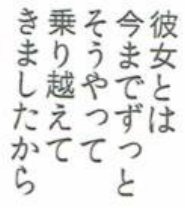 彼女とは
今までずっと
そうやって
乗り越えて
きましたから